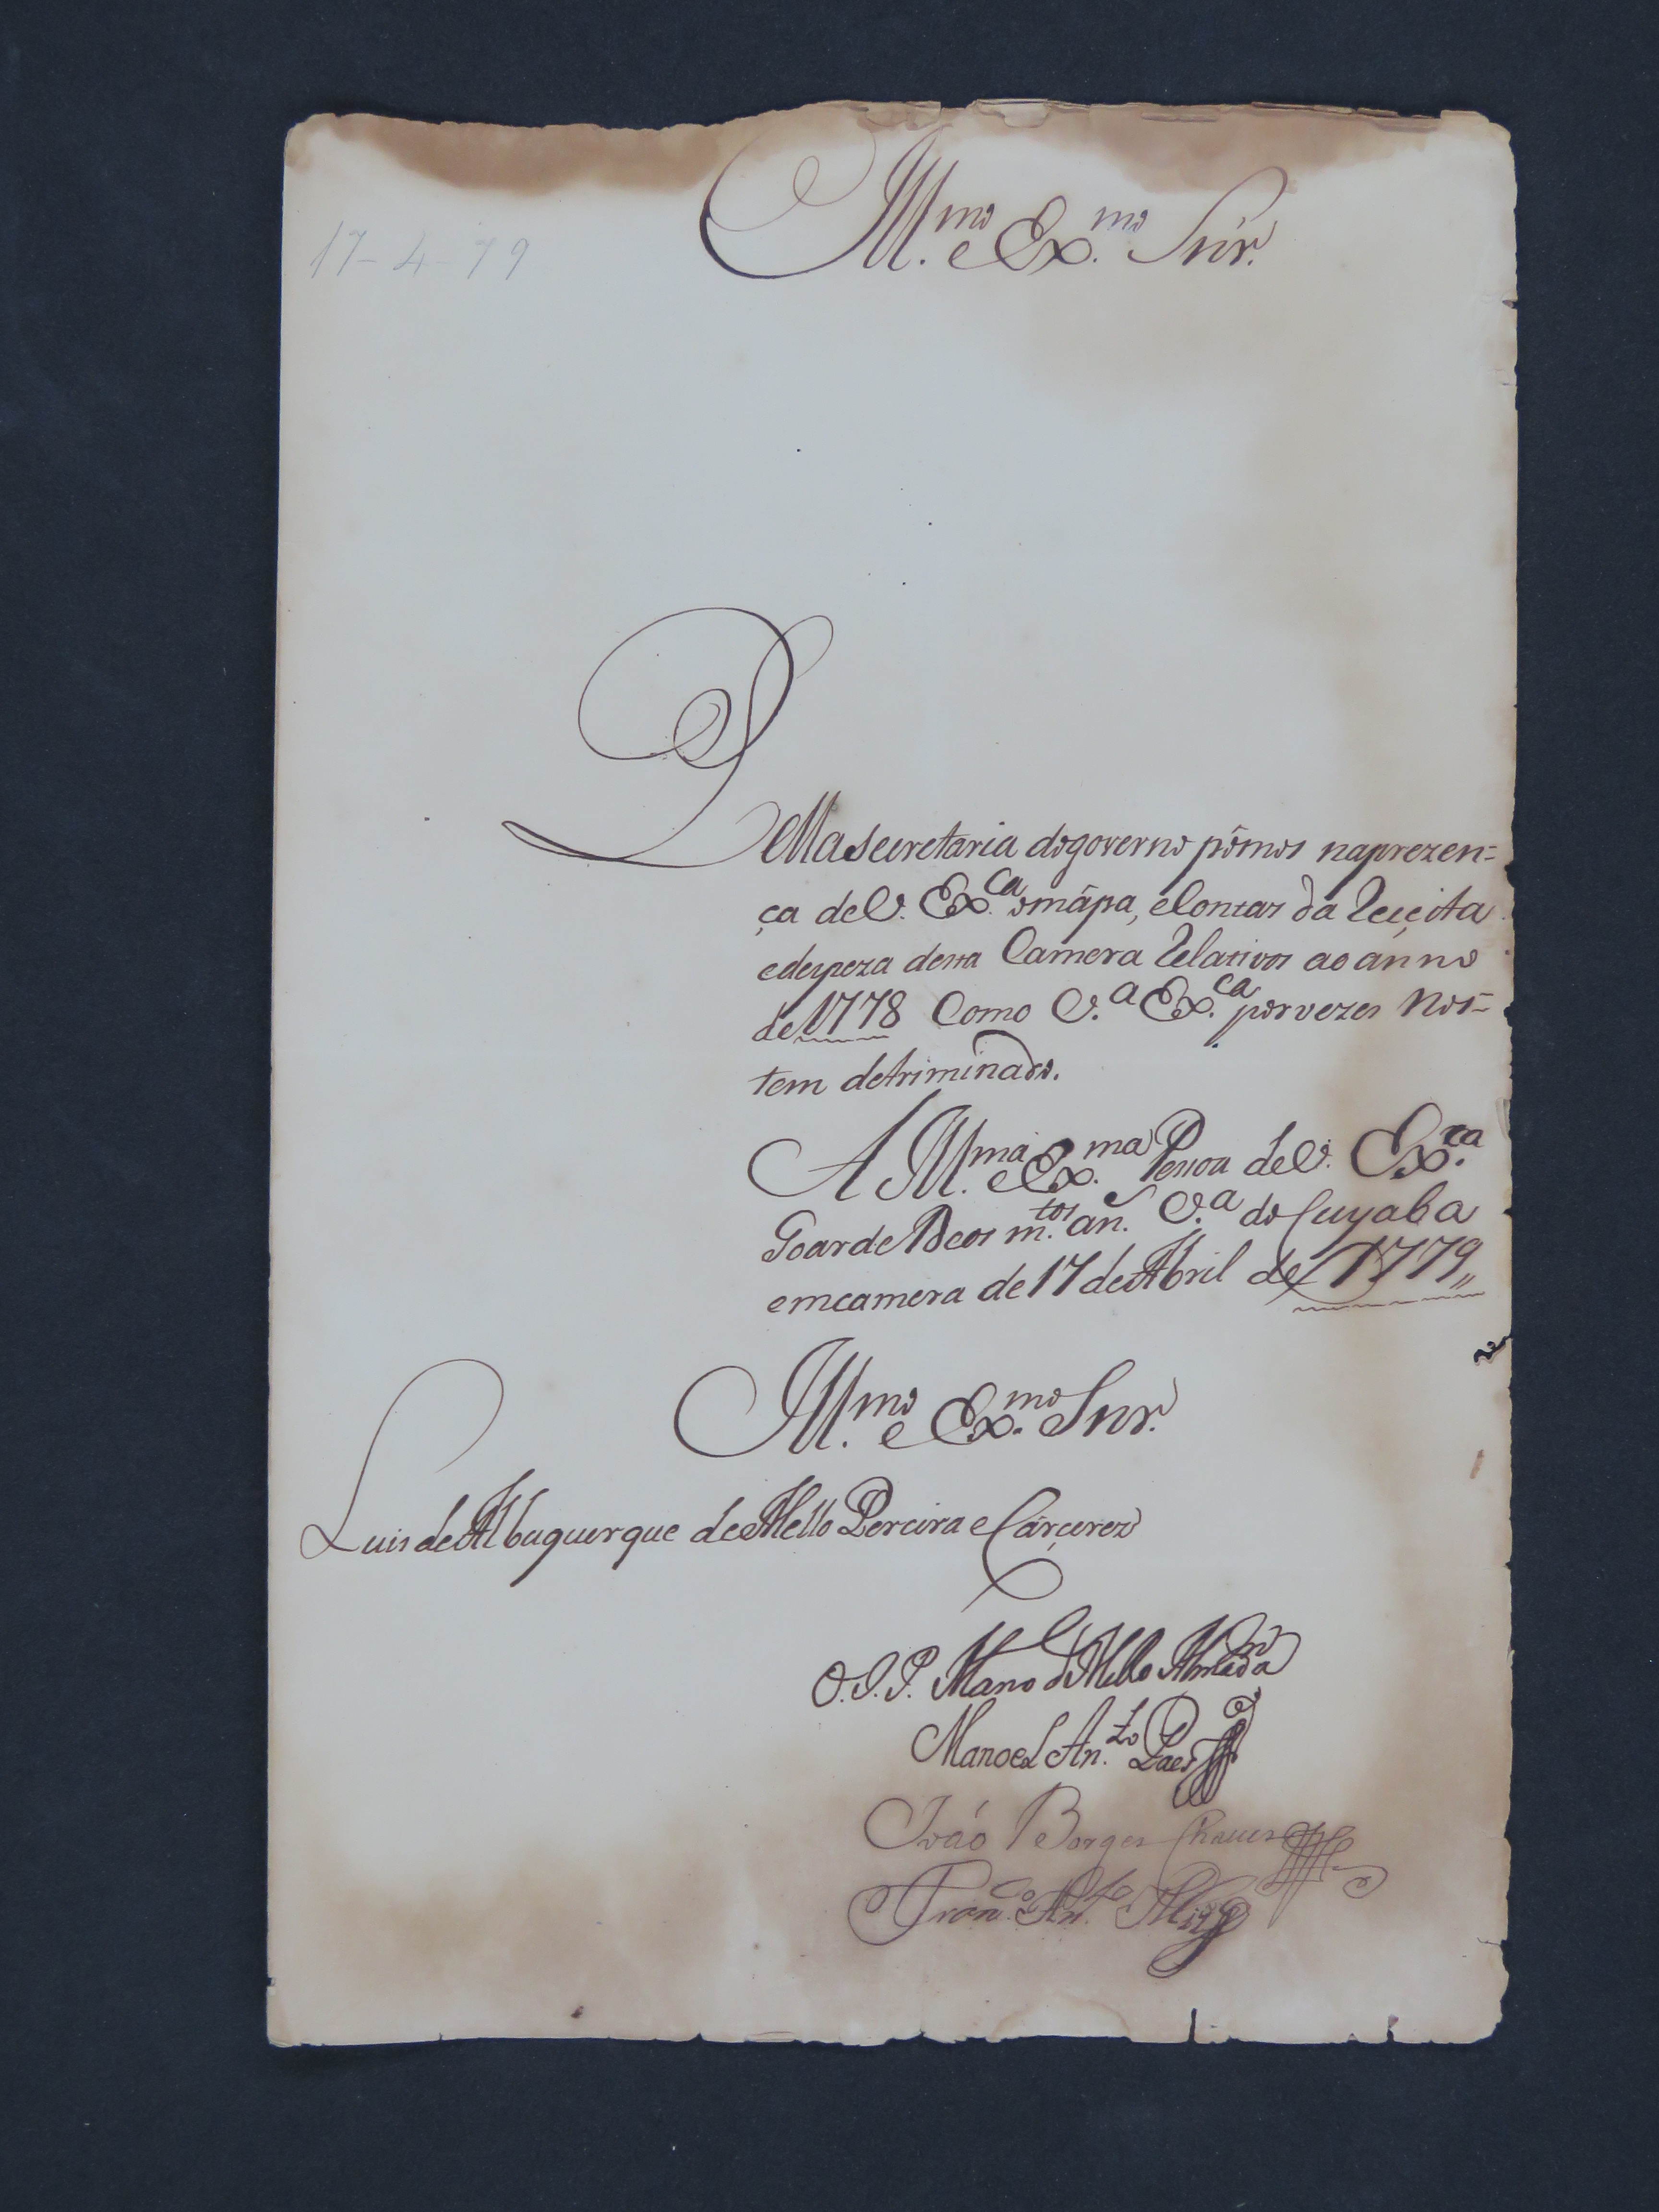 Ill.mo e Ex.mo Snr.
17-4-79
Pella secretaria do governo pômos na prezen=
ça de V. Ex.ca o mápa, e Contas da Receita
e despeza desta Camera Relativos ao ánno
de 1778 Como V.a Ex.ca por vezes nos=
tem detriminado.
A Ill.ma e Ex.ma Pessoa de V. Ex.ca
Goarde Deos m.tos an.s V.a do Cuyaba
em camera de 17 de Abril de 1779,,
Ill.mo e Ex.mo Snr.
Luis de Albuquerque de Mello Pereira e Cárceres
O. J. P. Mano d Mello Almeida
Manoel An.to Paes
João Borges Chaves
Fran.co An.to